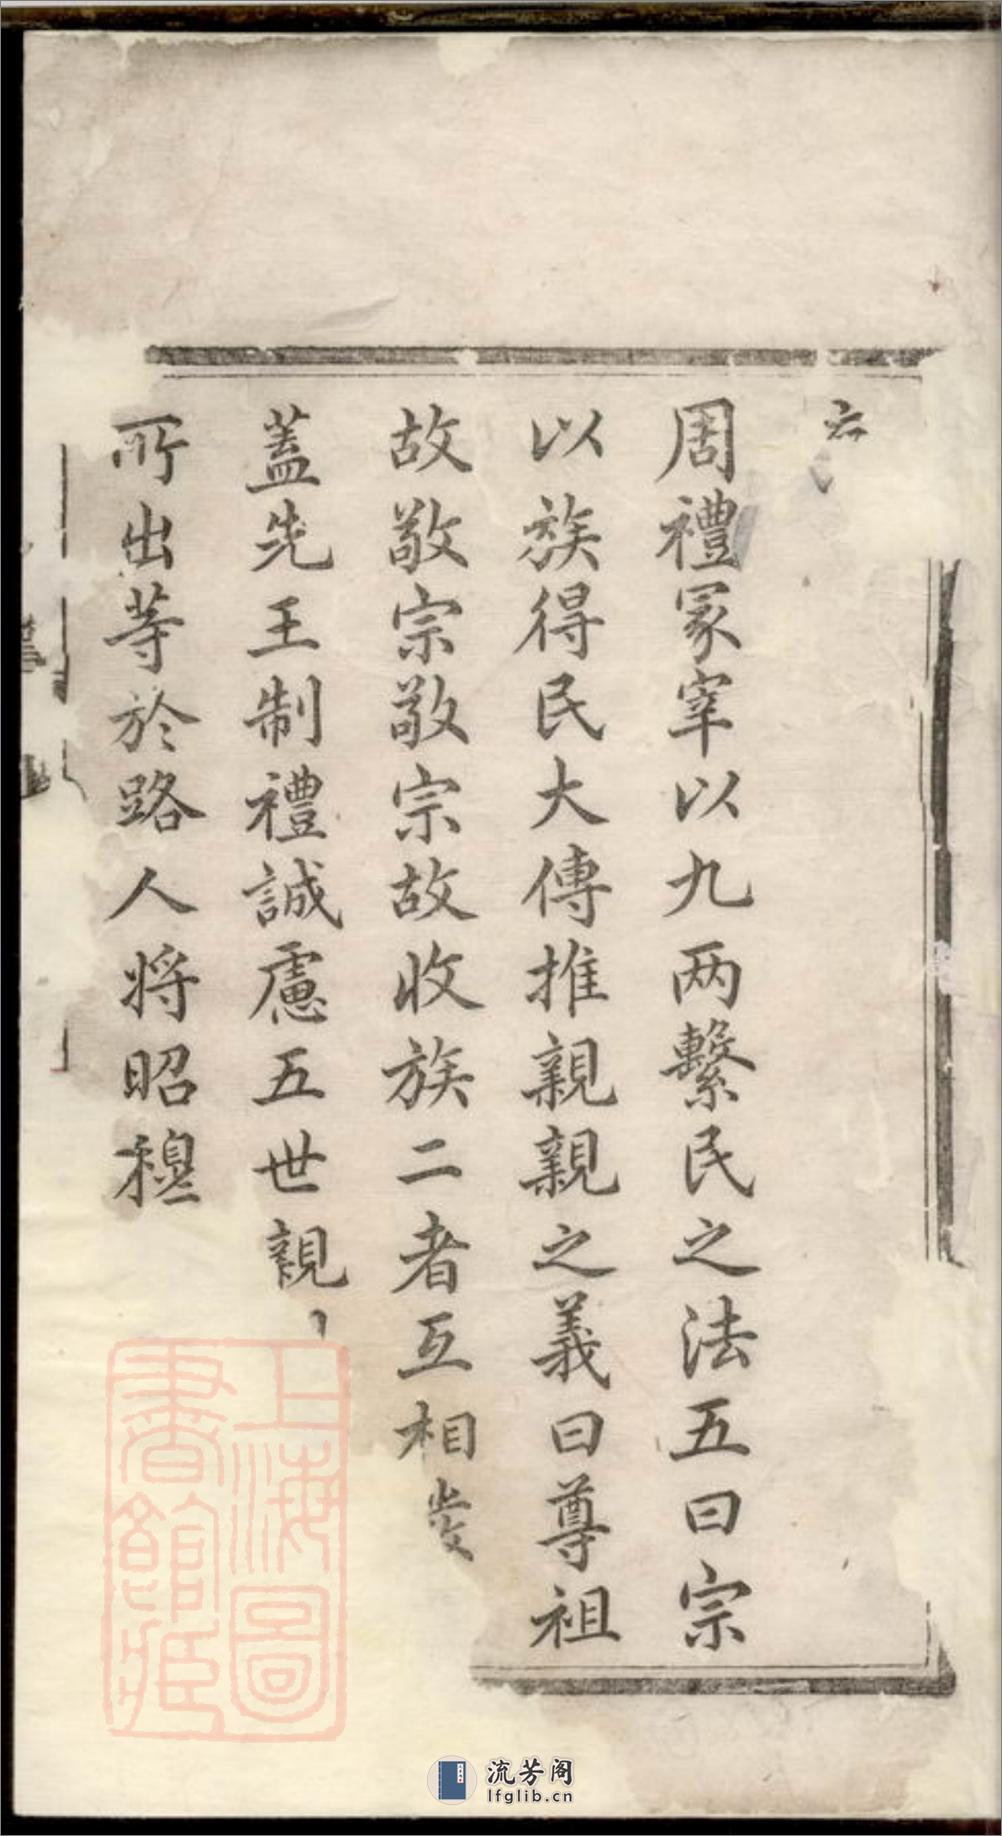 六
周禮冢宰以九两繫民之法五曰宗
以族得民大傳推親親之義曰尊祖
故敬宗敬宗故收族二者互相發
蓋先王制禮誠慮五世親
所出等於路人将昭穆
上海圖
書館藏
流芳阁
lfglib.cn